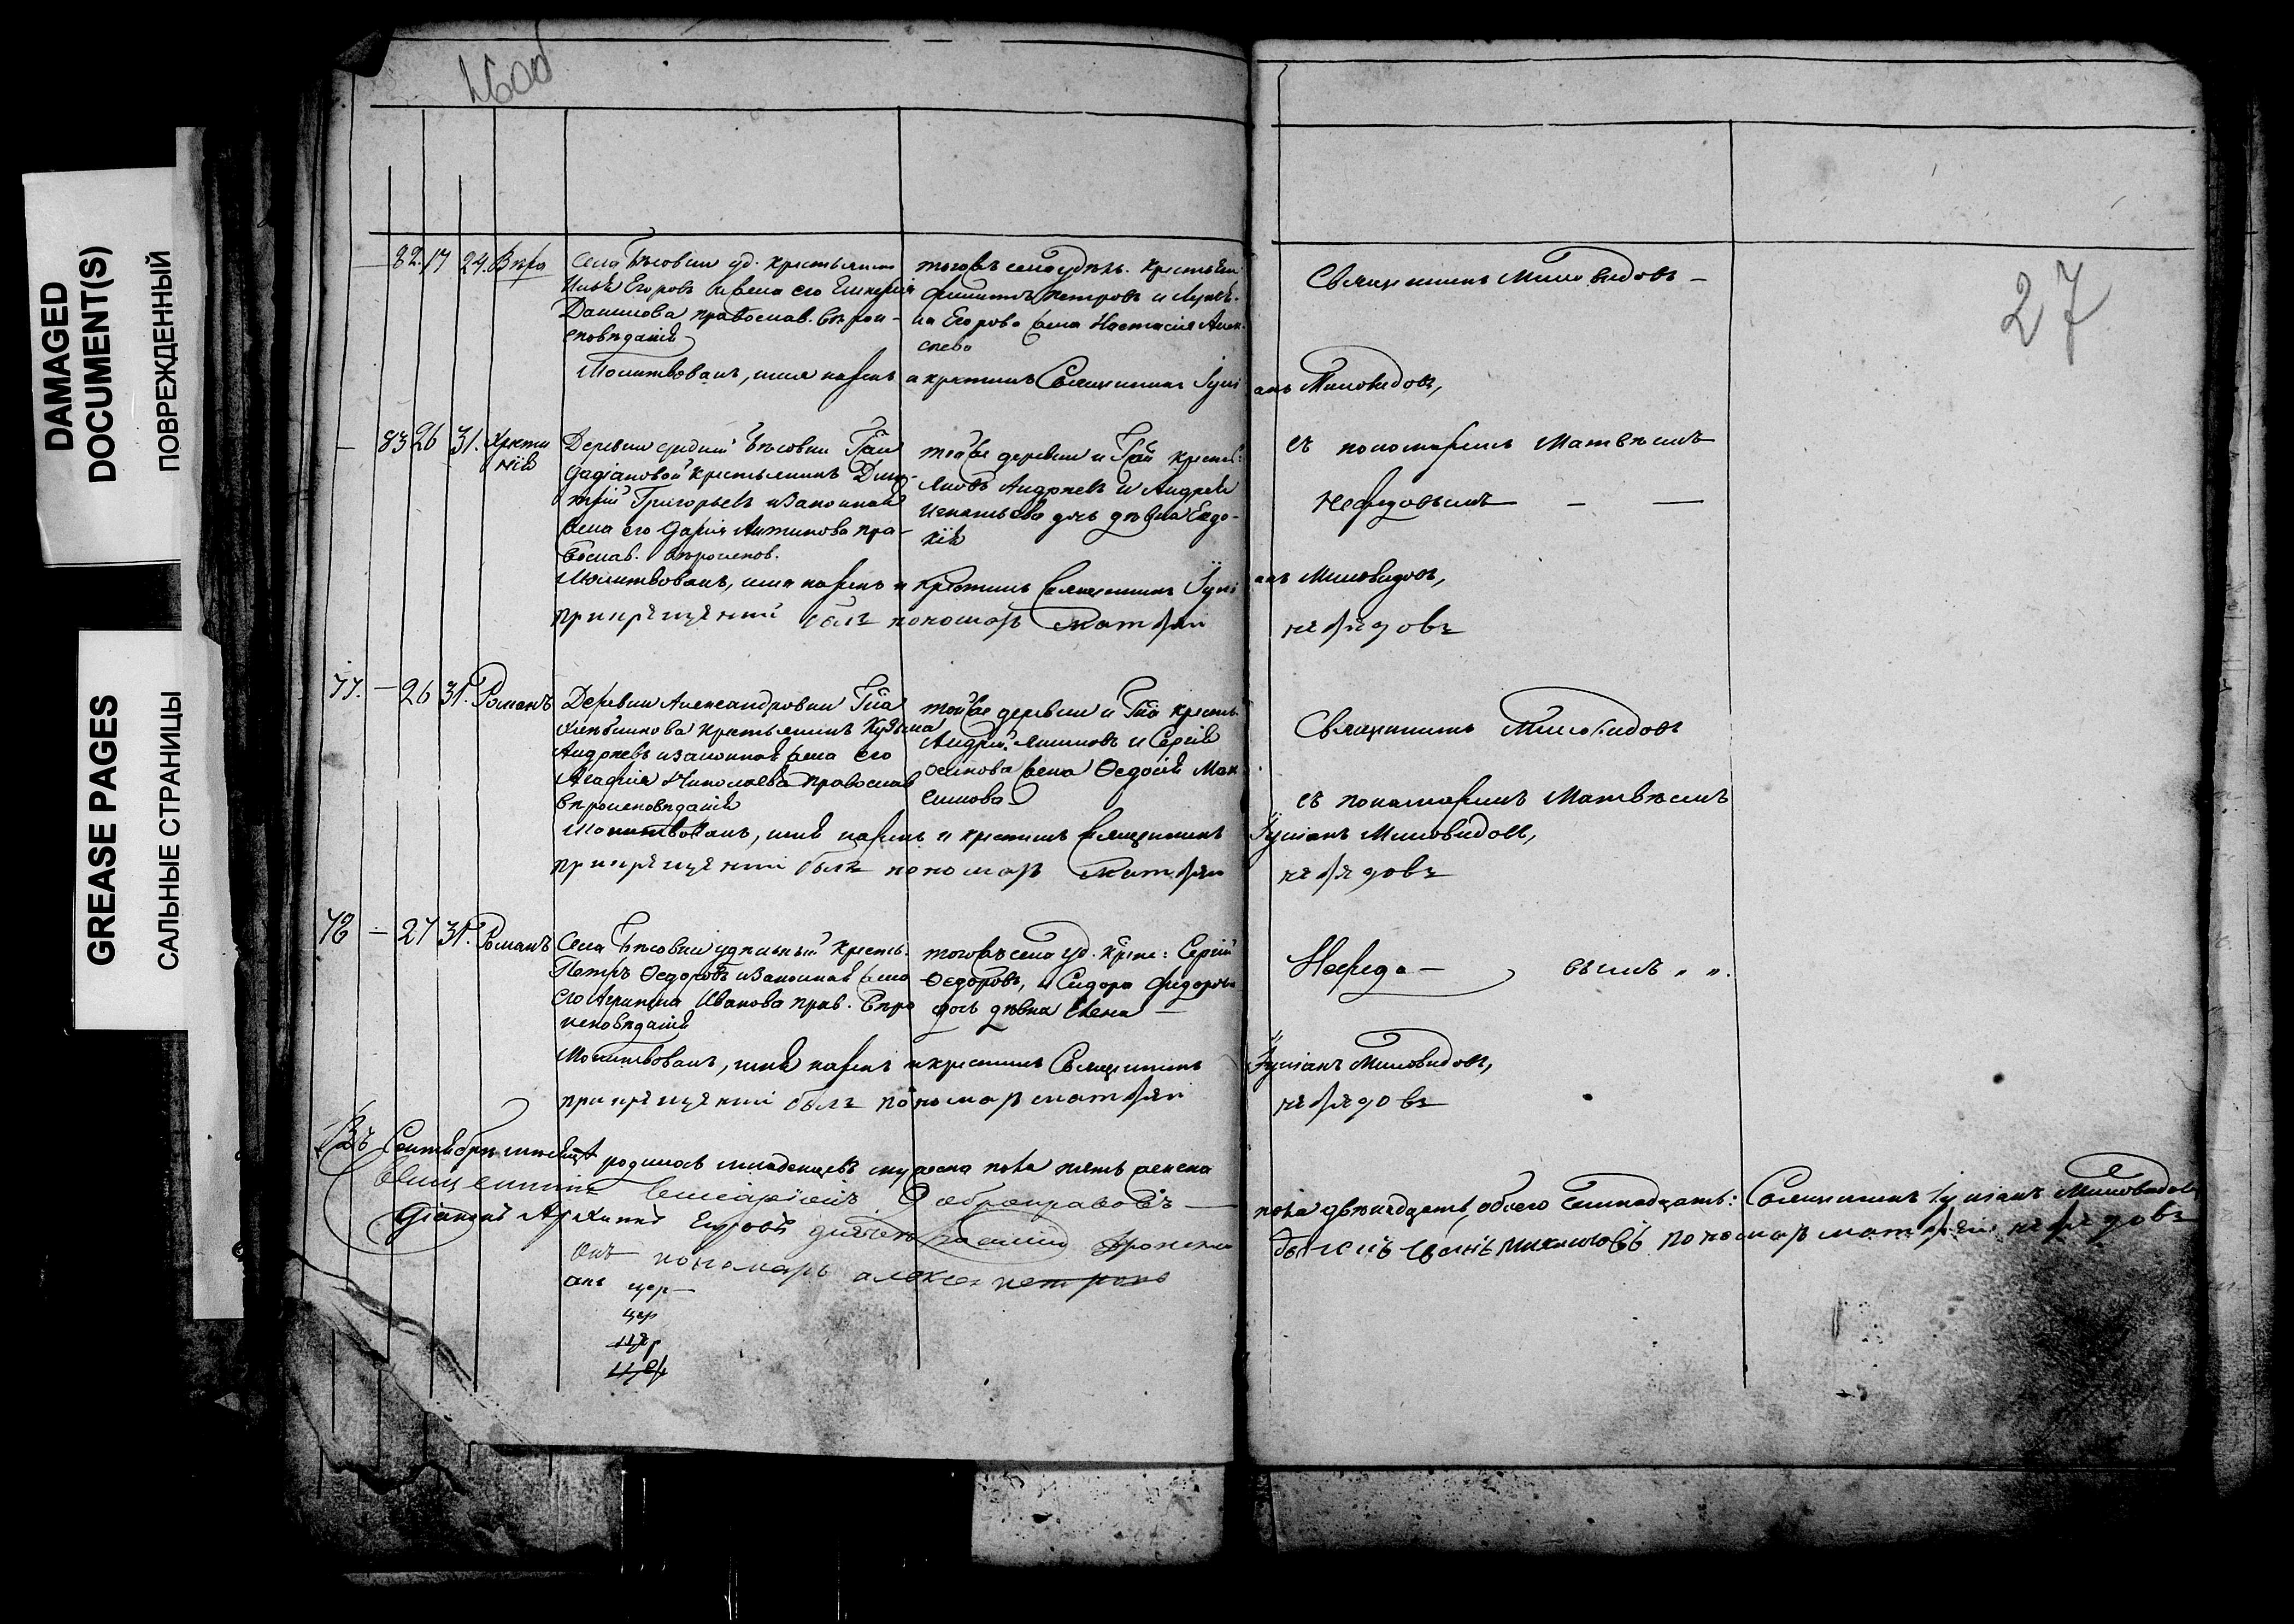 DAMAGED
DOCUMENT(S)
ПОВРЕЖДЕННЫЙ
GREASE PAGES
САЛЬНЫЕ СТРАНИЦЫ
27
82. 17 24. Вѣра
Села Бѣсовки уд. крестьянинъ
Егоровъ и жена его Гликерія
Данилова православ. вѣрои-
сповѣданія
тогожъ села удѣль. крестьян
Филиппъ Петровъ и
на Егорова жена Настасія Алек-
сѣева
Священникъ Миловидовъ —
Молитвовалъ, имя нарекъ и крестилъ Священникъ Іулі анъ Миловидовъ,
83 26 31. Христи
нія
Деревни средней Бѣсовки Гжи
Дадіановой крестьянинъ Дми-
трій Григорьевъ изаконная
жена его Дарія Антипова пра-
вослав. вѣроиспов.
тойже деревни и Гжи крестья:
Яковъ Андреевъ и Андрея
Игнатьева дочь дѣвка Евдо-
кія
съ пономаремъ Матвѣемъ
Нефедовымъ — —
Молитвовалъ, имя нарекъ и крестилъ Священникъ Іулі анъ Миловидовъ,
прикрещении былъ пономарь Матфей нефедовъ
77. — 26 31. Романъ
Деревни Александровки Гжа
Хлѣбникова крестьянинъ Кузьма
Андреевъ изаконная жена его
Агафія Николаева православ
вѣроисповѣданія
тойже деревни и Гжа кресть.
Андрей и Сергѣя
Осипова жена Ѳедосія Мак
симова
Священникъ Миловидовъ
съ пономаремъ Матвѣемъ
Молитвовалъ, имя нарекъ и крестилъ Священникъ Іуліанъ Миловидовъ,
прикрещении былъ пономарь Матфей нефедовъ
78 — 27 31. Романъ
Села Бѣсовки удѣльный кресть.
Петръ Ѳедоровъ изаконная жена
его Агрипина Иванова прав. вѣро
исповѣданія
тогожъ села уд. крес: Сергѣй
Ѳедоровъ, и Сидора Федорова
дочь дѣвка Елена —
Нефедо — вымъ „ „.
Молитвовалъ, имя нарекъ и крестилъ Священникъ Іуліанъ Миловидовъ,
прикрещении былъ пономарь матфей нефедовъ
Въ Сентябрѣ мѣсяцѣ родилось младенцевъ мужеска пола пять женска пола двѣнадцать, обоего семнадцать: Священникъ Іуліанъ Миловидовъ
Священникъ Виссаріонъ Доброправовъ —
Діаконъ Егоровъ дьячекъ Василій
Иванъ Михайловъ пономарь матфей нефедовъ
пономарь алексей петровъ
цер
цер
цер